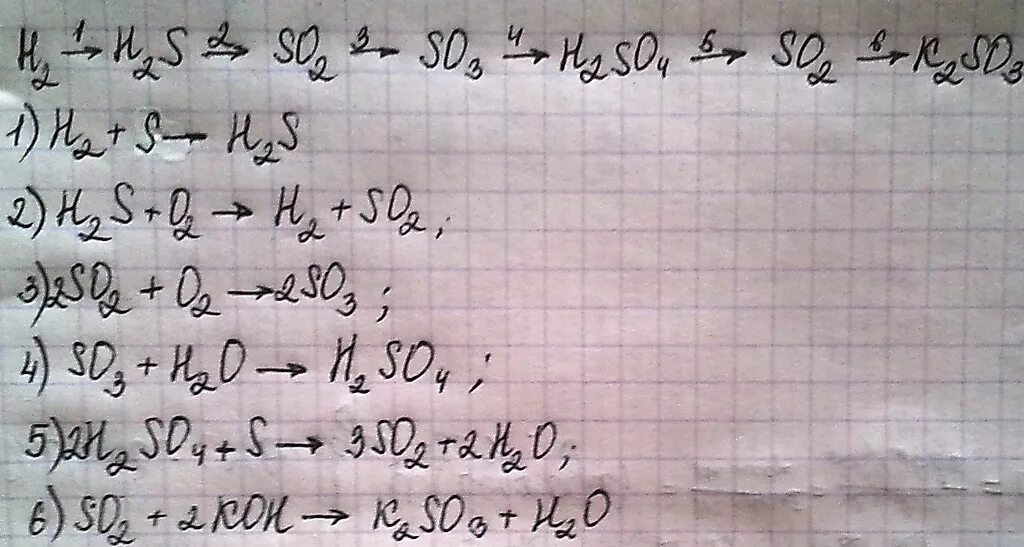 H₂ 1→ H₂S 2→ SO₂ 3→ SO₃ 4→ H₂SO₄ 5→ SO₂ 6→ K₂SO₃
1) H₂ + S → H₂S
2) H₂S + O₂ → H₂ + SO₂;
3) 2SO₂ + O₂ → 2SO₃;
4) SO₃ + H₂O → H₂SO₄;
5) 2H₂SO₄ + S → 3SO₂ + 2H₂O;
6) SO₂ + 2KOH → K₂SO₃ + H₂O